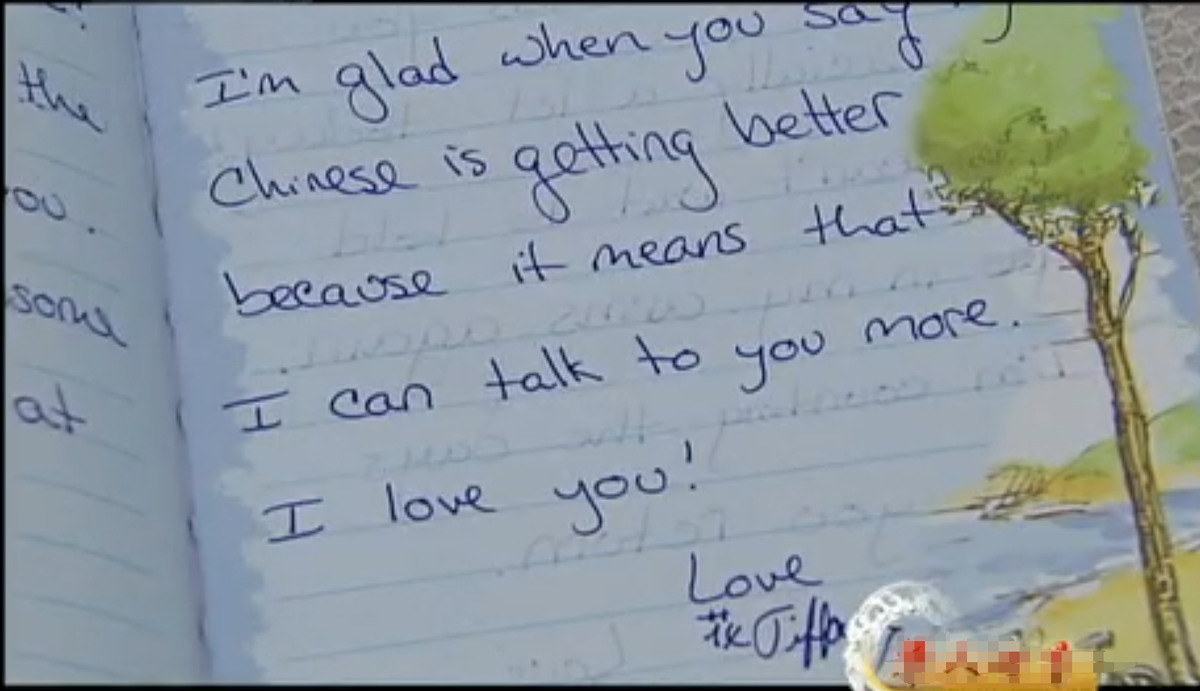 the
some
at
I'm glad when you say
Chinese is getting better
because it means that
I can talk to you more.
I love you!
Love